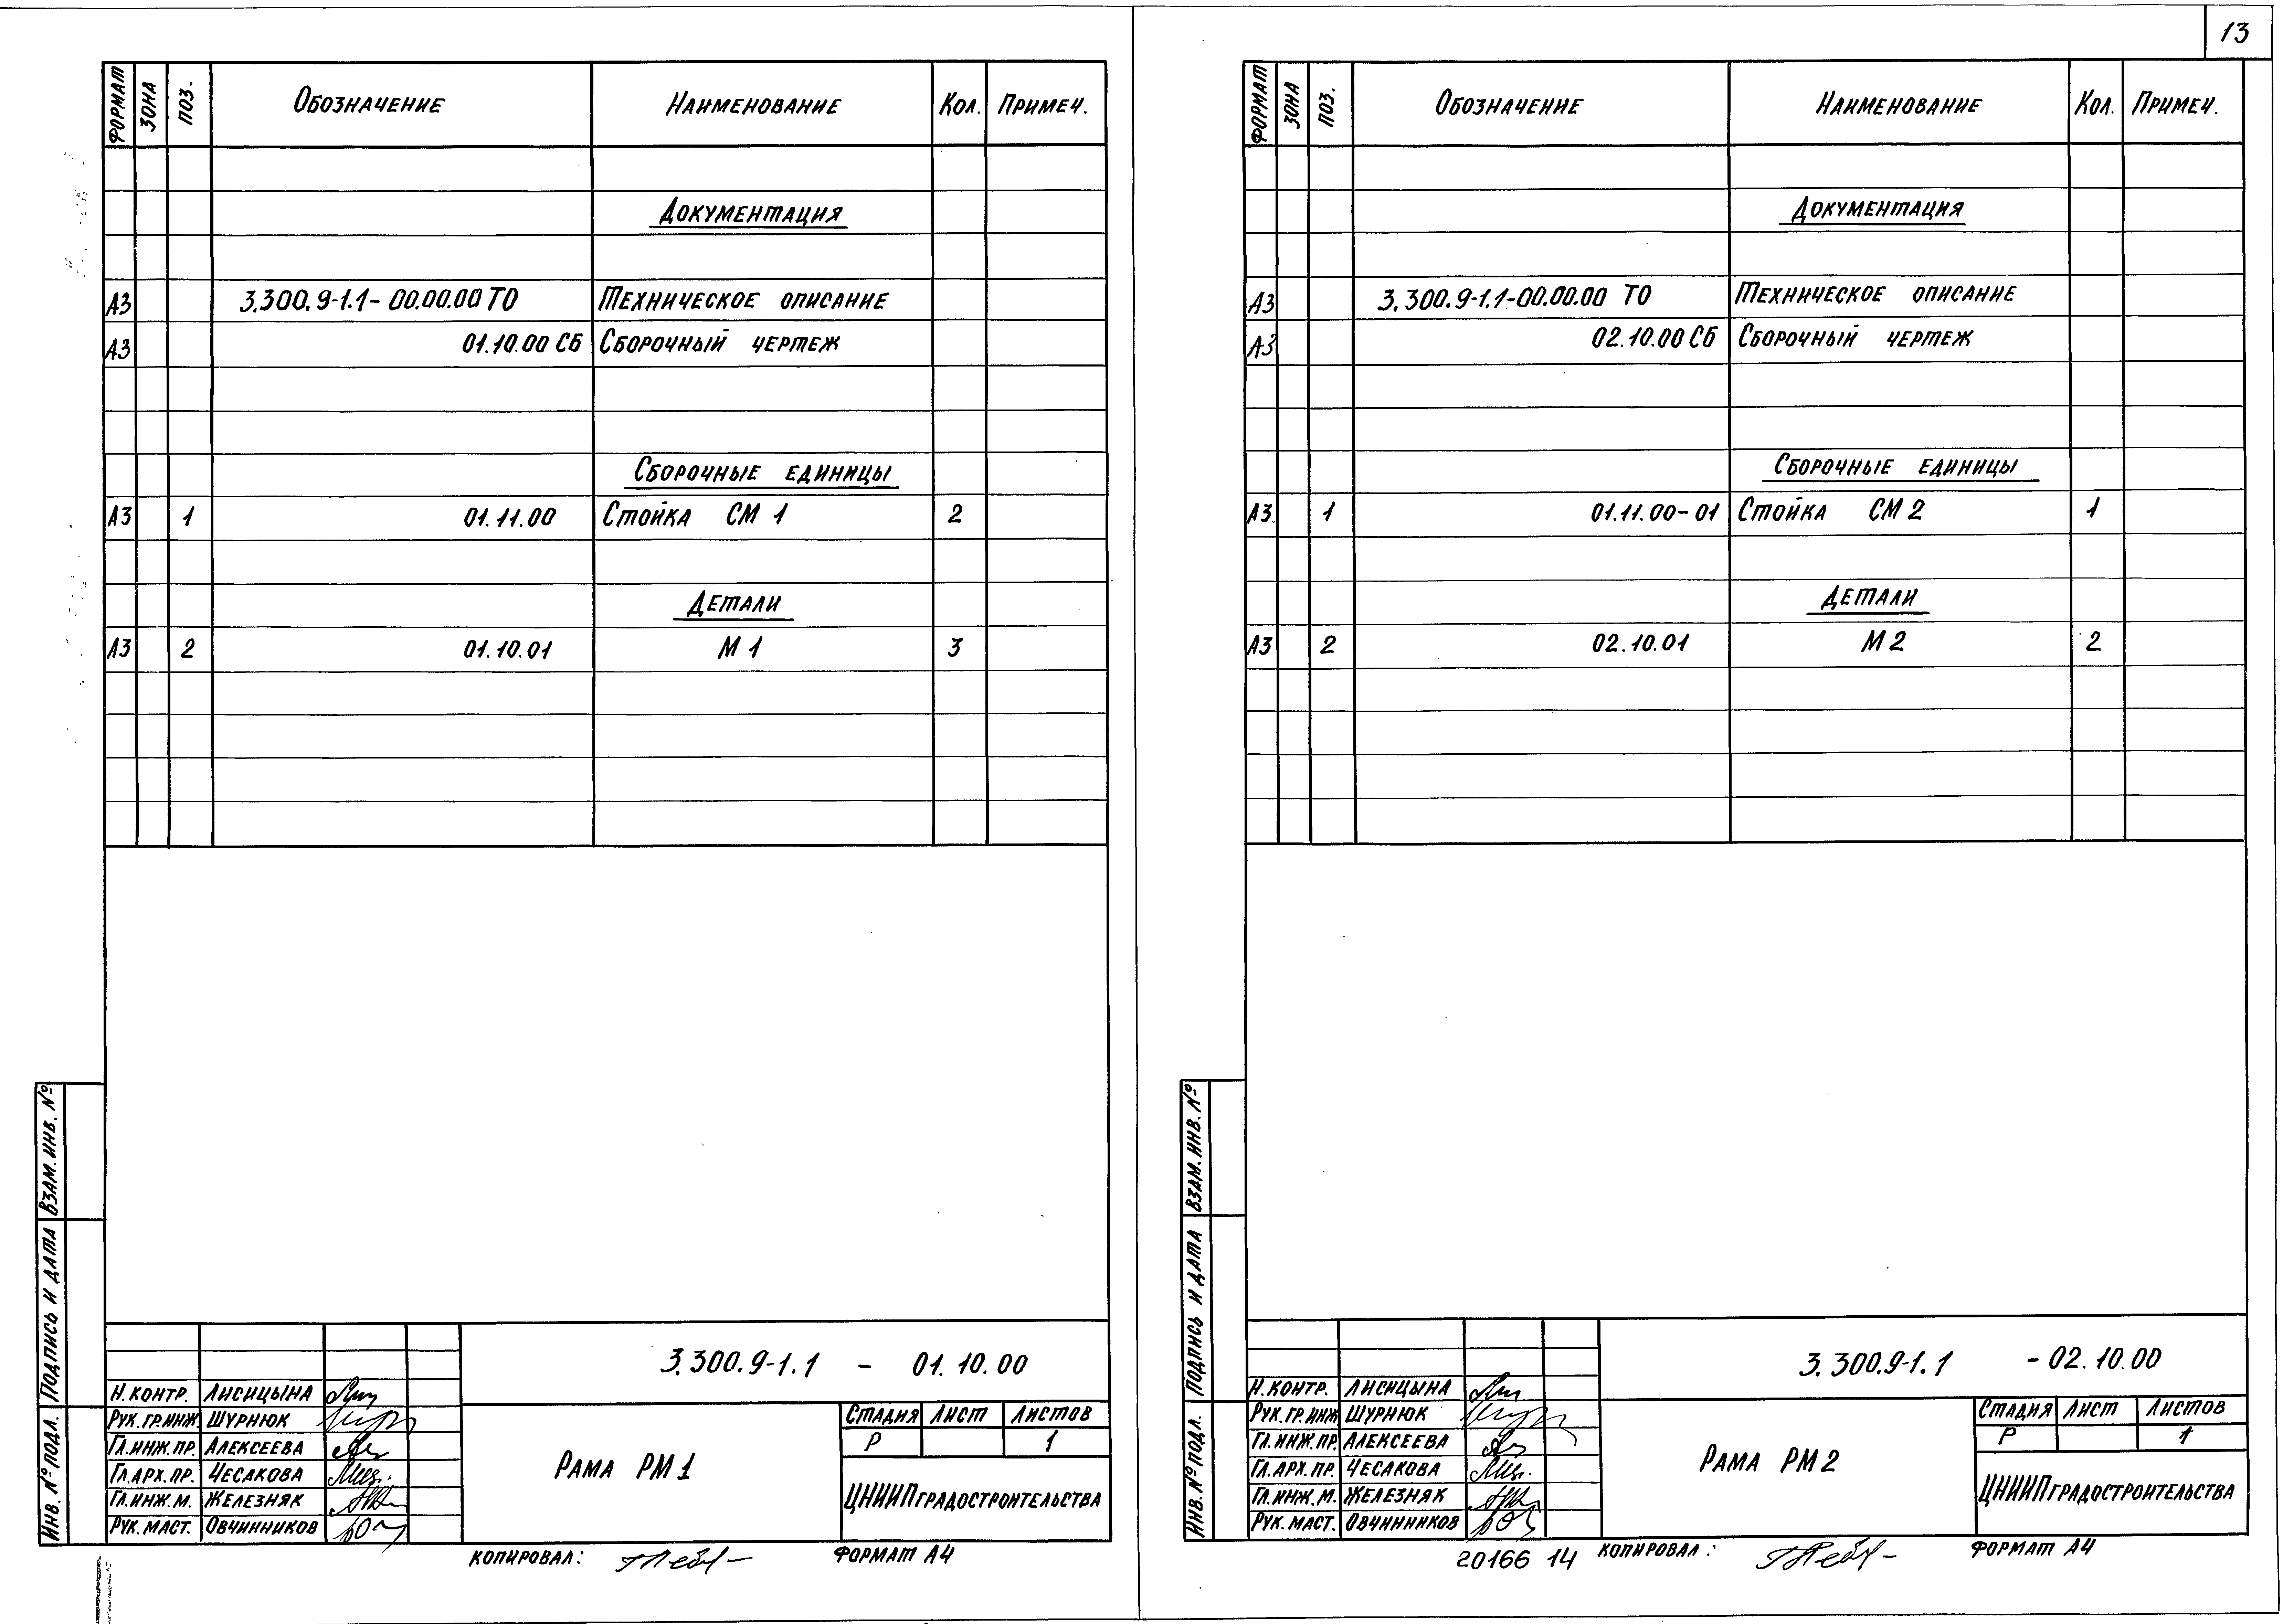 13
ФОРМАТ ЗОНА ПОЗ. ОБОЗНАЧЕНИЕ НАИМЕНОВАНИЕ КОЛ. ПРИМЕЧ.
ДОКУМЕНТАЦИЯ
А3 3.300.9-1.1-00.00.00 ТО ТЕХНИЧЕСКОЕ ОПИСАНИЕ
А3 01.10.00 СБ СБОРОЧНЫЙ ЧЕРТЕЖ
СБОРОЧНЫЕ ЕДИНИЦЫ
А3 1 01.11.00 СТОЙКА СМ 1 2
ДЕТАЛИ
А3 2 01.10.01 М 1 3
ВЗАМ. ИНВ. №
ПОДПИСЬ И ДАТА
ИНВ. № ПОДЛ.
3.300.9-1.1 - 01.10.00
Н. КОНТР. ЛИСИЦЫНА
РУК. ГР. ИНЖ. ШУРНЮК
ГЛ. ИНЖ. ПР. АЛЕКСЕЕВА
ГЛ. АРХ. ПР. ЧЕСАКОВА
ГЛ. ИНЖ. М. ЖЕЛЕЗНЯК
РУК. МАСТ. ОВЧИННИКОВ
РАМА РМ 1
СТАДИЯ ЛИСТ ЛИСТОВ
Р 1
ЦНИИПГРАДОСТРОИТЕЛЬСТВА
КОПИРОВАЛ: ФОРМАТ А4
ФОРМАТ ЗОНА ПОЗ. ОБОЗНАЧЕНИЕ НАИМЕНОВАНИЕ КОЛ. ПРИМЕЧ.
ДОКУМЕНТАЦИЯ
А3 3.300.9-1.1-00.00.00 ТО ТЕХНИЧЕСКОЕ ОПИСАНИЕ
А3 02.10.00 СБ СБОРОЧНЫЙ ЧЕРТЕЖ
СБОРОЧНЫЕ ЕДИНИЦЫ
А3 1 01.11.00-01 СТОЙКА СМ 2 1
ДЕТАЛИ
А3 2 02.10.01 М 2 2
ВЗАМ. ИНВ. №
ПОДПИСЬ И ДАТА
ИНВ. № ПОДЛ.
3.300.9-1.1 - 02.10.00
Н. КОНТР. ЛИСИЦЫНА
РУК. ГР. ИНЖ ШУРНЮК
ГЛ. ИНЖ. ПР. АЛЕКСЕЕВА
ГЛ. АРХ. ПР. ЧЕСАКОВА
ГЛ. ИНЖ. М. ЖЕЛЕЗНЯК
РУК. МАСТ. ОВЧИННИКОВ
РАМА РМ 2
СТАДИЯ ЛИСТ ЛИСТОВ
Р 1
ЦНИИПГРАДОСТРОИТЕЛЬСТВА
20166 14 КОПИРОВАЛ: ФОРМАТ А4